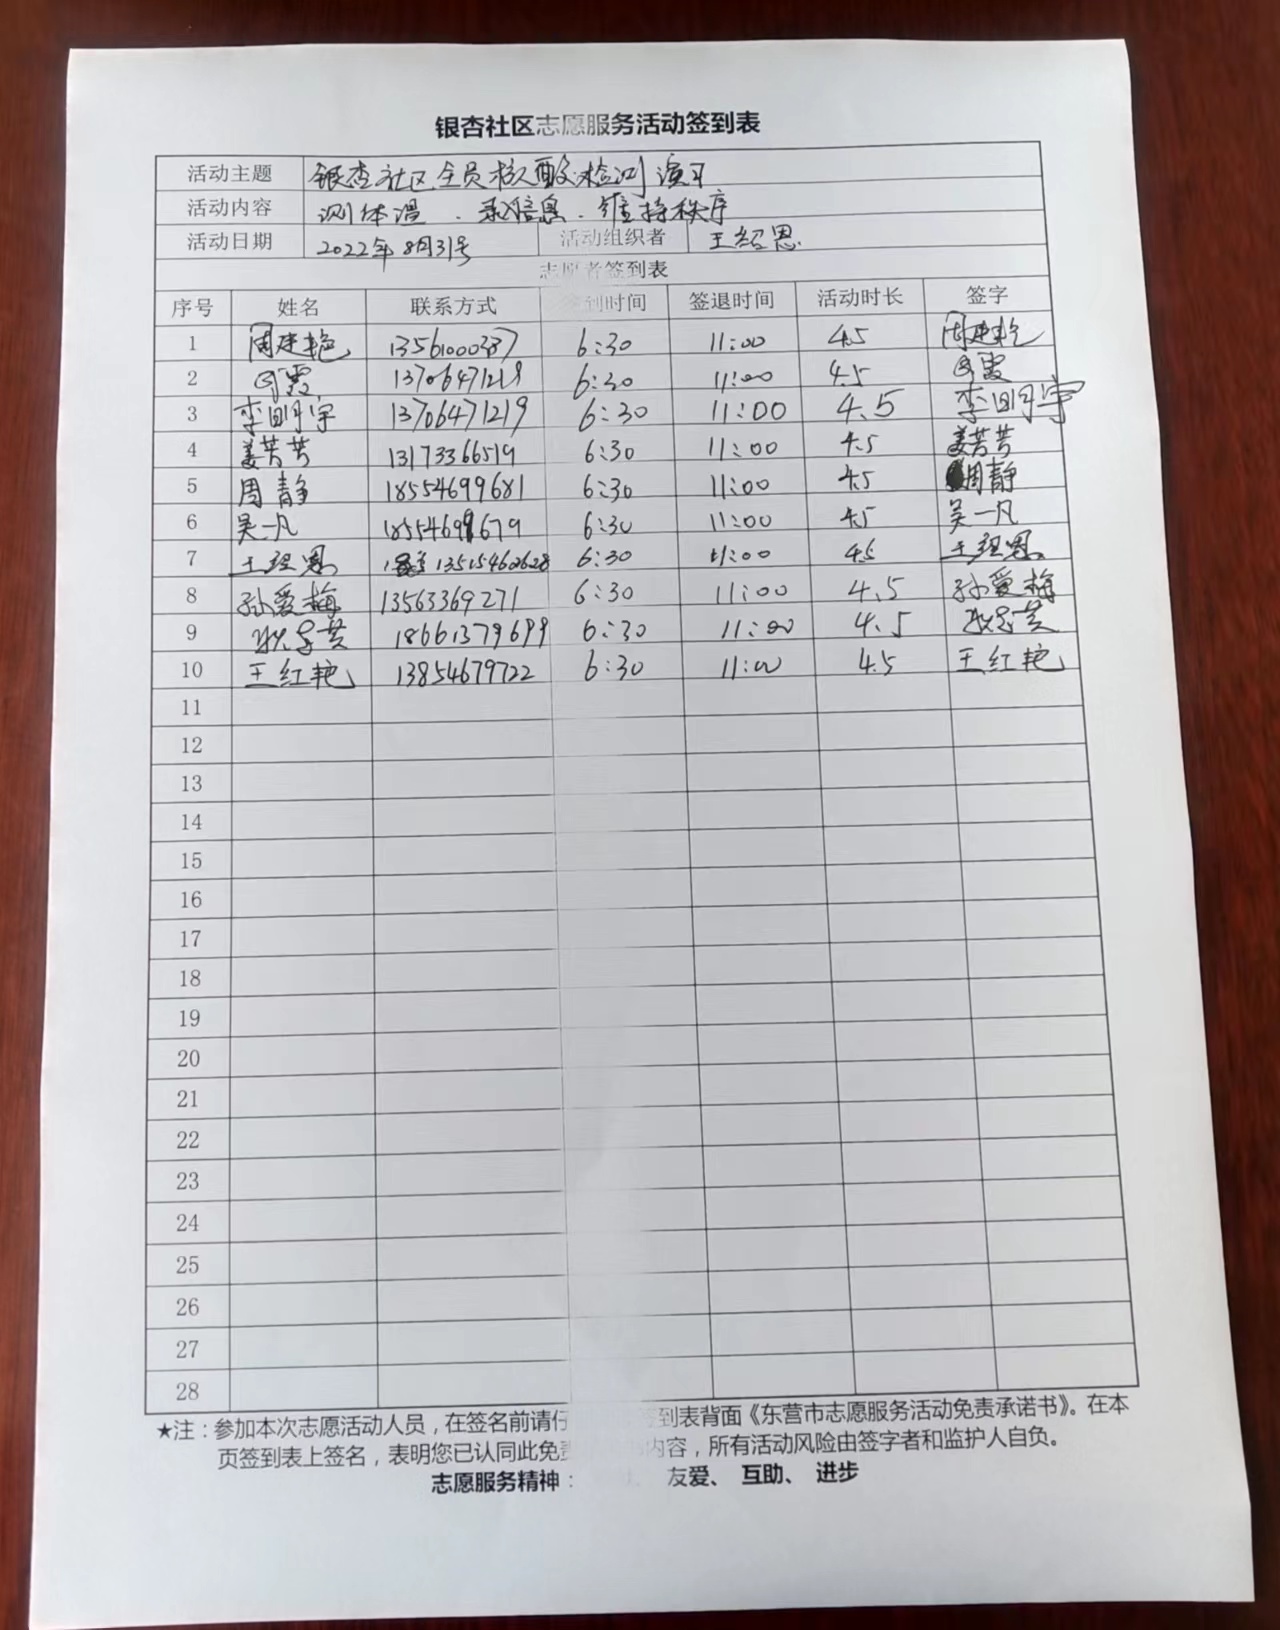 银杏社区志愿服务活动签到表
活动主题 银杏社区全员核酸检测演习
活动内容 测体温、录信息、维持秩序
活动日期 2022年8月31号 活动组织者 王绍恩
志愿者签到表
序号 姓名 联系方式 签到时间 签退时间 活动时长 签字
1 周建艳 13561000387 6:30 11:00 4.5 周建艳
2 霞 13706471219 6:30 11:00 4.5 霞
3 李明宇 13706471219 6:30 11:00 4.5 李明宇
4 姜芳芳 13173366519 6:30 11:00 4.5 姜芳芳
5 周静 18554699681 6:30 11:00 4.5 周静
6 吴一凡 18554699679 6:30 11:00 4.5 吴一凡
7 王绍恩 13515462628 6:30 11:00 4.5 王绍恩
8 孙爱梅 13563369271 6:30 11:00 4.5 孙爱梅
9 18661379699 6:30 11:00 4.5
10 王红艳 13854679722 6:30 11:00 4.5 王红艳
11
12
13
14
15
16
17
18
19
20
21
22
23
24
25
26
27
28
★注：参加本次志愿活动人员，在签名前请仔 签到表背面《东营市志愿服务活动免责承诺书》。在本
页签到表上签名，表明您已认同此免责 内容，所有活动风险由签字者和监护人自负。
志愿服务精神： 友爱、 互助、 进步